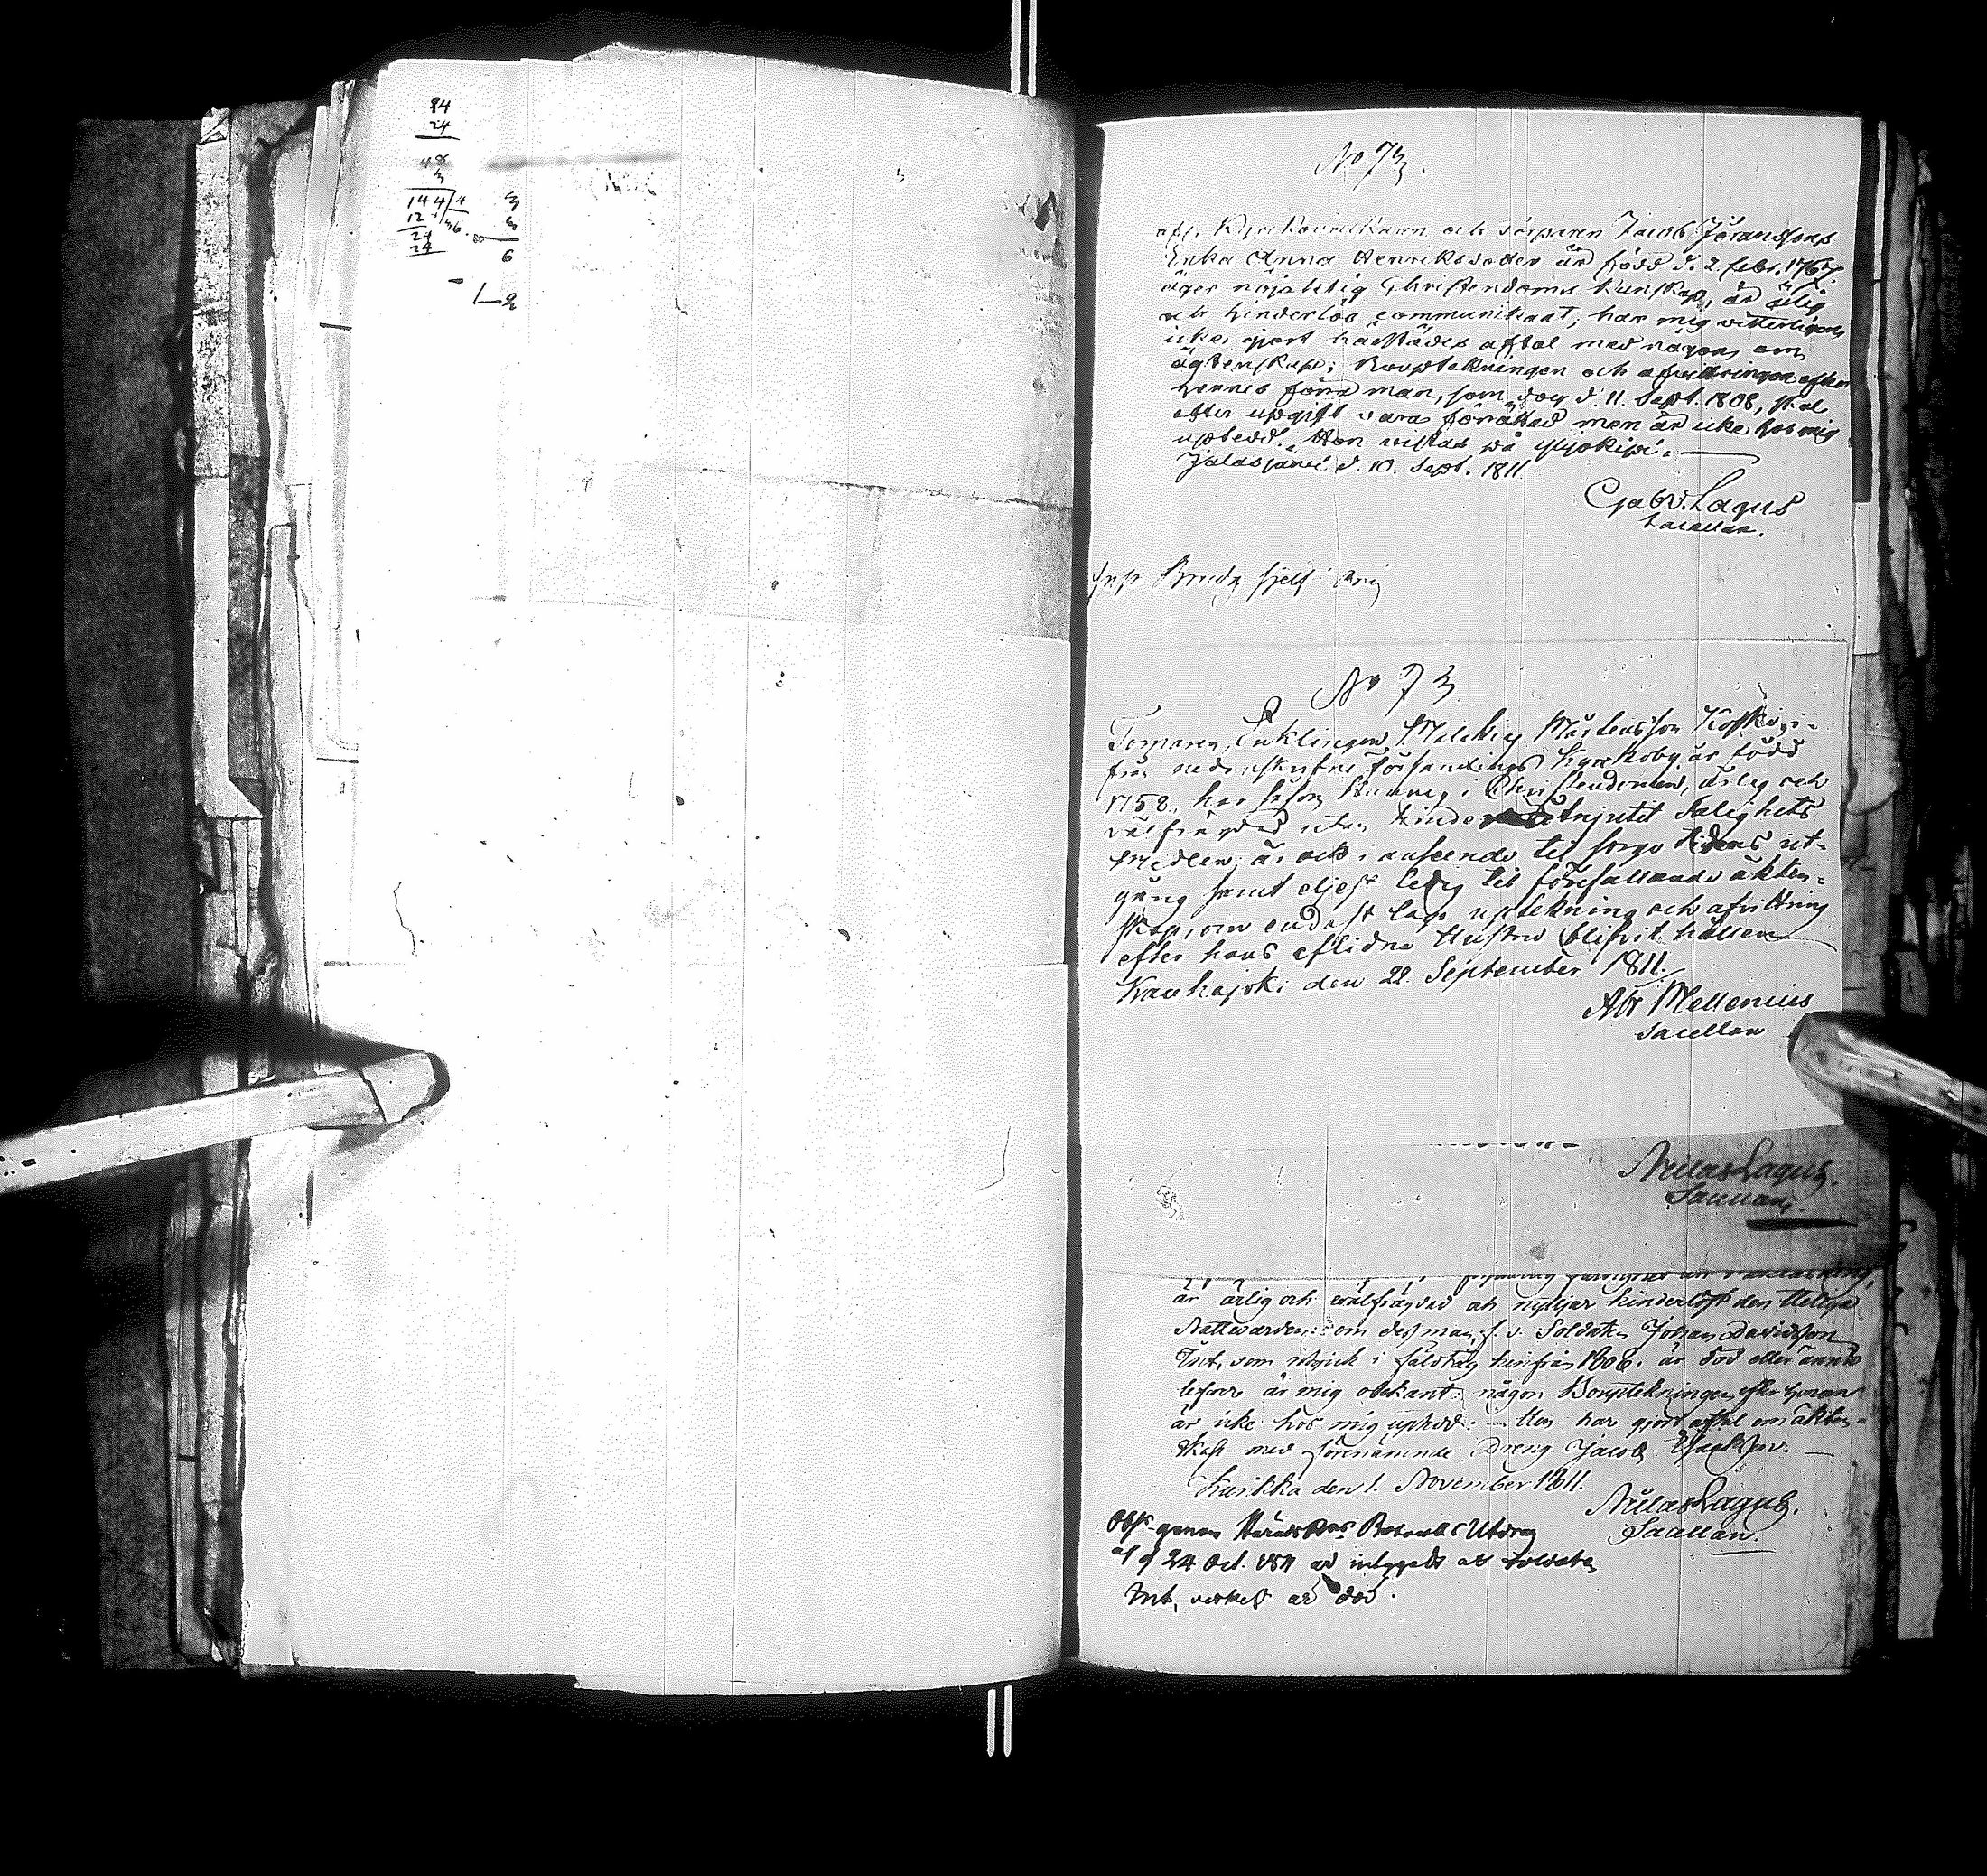 24
24
48
3
144 4
12 36.
24
24
3
3
6
No 73.
afl. Kyrkowäktaren och Torparen Jacob Jöranssons
Enka Anna Henriksdoter är född d. 2. febr. 1767.
äger nöjaktig Christendoms kunskap, är ärlig
och hinderlös communikant; har mig vetterligen
icke gjort härstädes aftal med någon om
ägtenskap; Bouptekningen och afvittringen efter
hennes förra man, som dog d. 11. Sept. 1808, skal
efter upgift vara förrättad men är icke hos mig
uptedd. Hon vistas på
Jalasjärvi d. 10. Sept. 1811.
Gabr. Lagus
Sacellan.
Bruden sjelf
No 73
Torparen, Enklingen Matthig Mårtensson Koski
från nedanskrifne församlings Kyrkoby är född
1758, har kunnig i Christendomen, ärlig och
välfrägdad utan hinder åtnjutit Salighets
medlen; är ock i anseende til sorgetidens ut-
gång samt eljest ledig til förefallande äkten-
skap, om endast laga uptekning och afvittring
efter hans aflidna Hustru blifvit hållen
Kauhajoki den 22. September 1811.
Abr Mellenius
Sacellan
Niclas Lagus.
Sacellan.
är ärlig och wälfrägdad och nyttjar hinderlöst den Heliga
Nattwarden: om dess man, f. d. Soldaten Johan Davidsson
Tont, som utgick i fälttåg härifrån 1808. är död eller ännu
lefver är mig obekant; någon Bouptekning efter honom
är icke hos mig uptedd. Hon har gjort aftal om äkten-
skap med förenämnde Dreng Jacob Esaksson.
Kurikka den 1. November 1811.
Niclas Lagus.
Sacellan.
Obs. genom Härads Rätts Protocolls Utdrag
af d 24 Oct. 1811 är inlyst at Soldaten
Tont, verkel. är död.